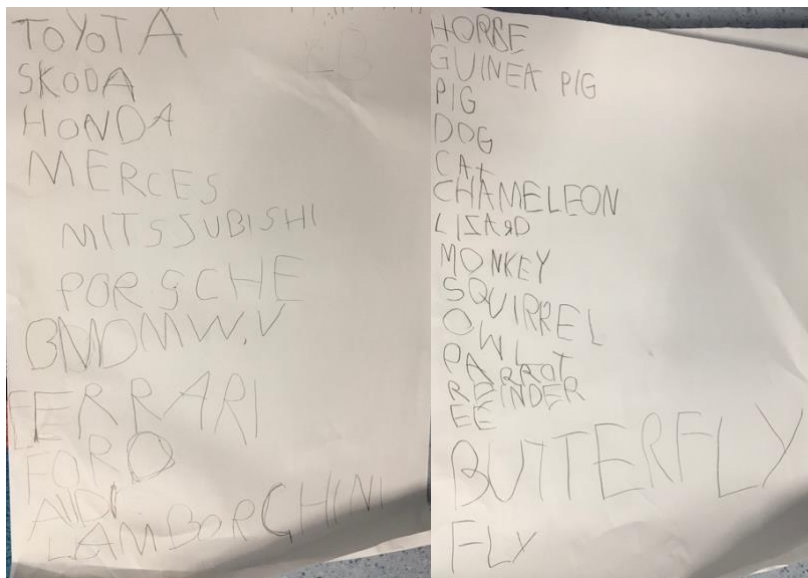 TOYOTA
SKODA
HONDA
MERCES
MITSSUBISHI
PORSCHE
FERRARI
FORD
LAMBORGHINI
HORSE
GUINEA PIG
PIG
DOG
CAt
CHAMELEON
LIZARD
MONKEY
SQUIRREL
OWL
PARROT
REINDER
EE
BUTTERFLY
FLY